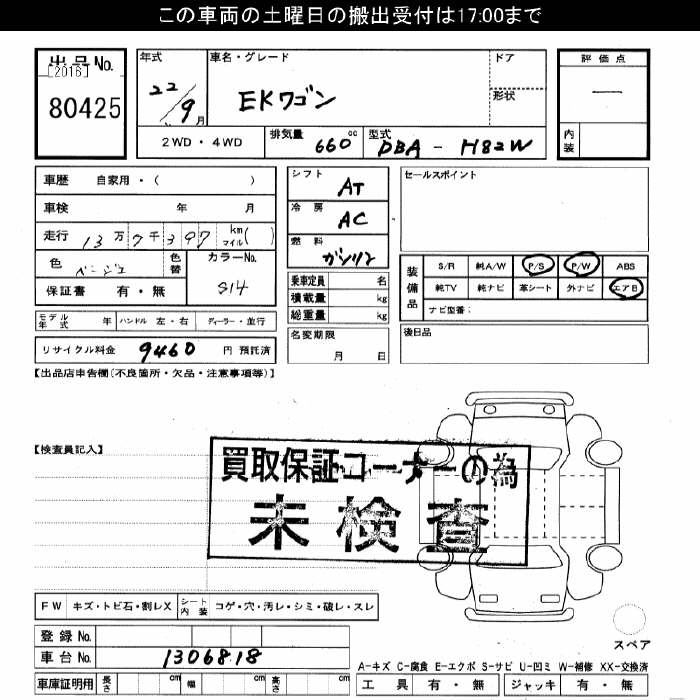 この車両の土曜日の搬出受付は17:00まで
出品No.
[2016]
80425
年式 22/9月
車名・グレード
EKワゴン
ドア
形状
評価点
—
内装
2WD・4WD
排気量 660cc
型式 DBA-H82W
車歴 自家用・( )
車検 年 月
走行 13万7千397 km マイル( )
色 ベージュ 色替
カラーNo. S14
保証書 有・無
シフト AT
冷房 AC
燃料 ガソリン
乗車定員 名
積載量 kg
総重量 kg
セールスポイント
装備品
S/R 純A/W P/S P/W ABS
純TV 純ナビ 革シート 外ナビ エアB
ナビ型番:
モデル年式 年 ハンドル 左・右 ディーラー・並行
名変期限 月 日
後日品
リサイクル料金 9460 円 預託済
【出品店申告欄(不良箇所・欠品・注意事項等)】
【検査員記入】
買取保証コーナーの為
未検査
FW キズ・トビ石・割レX シート内装 コゲ・穴・汚レ・シミ・破レ・スレ
登録No.
車台No. 1306818
車庫証明用 長さ cm 幅 cm 高さ cm
スペア
A-キズ C-腐食 E-エクボ S-サビ U-凹ミ W-補修 XX-交換済
工具 有・無 ジャッキ 有・無